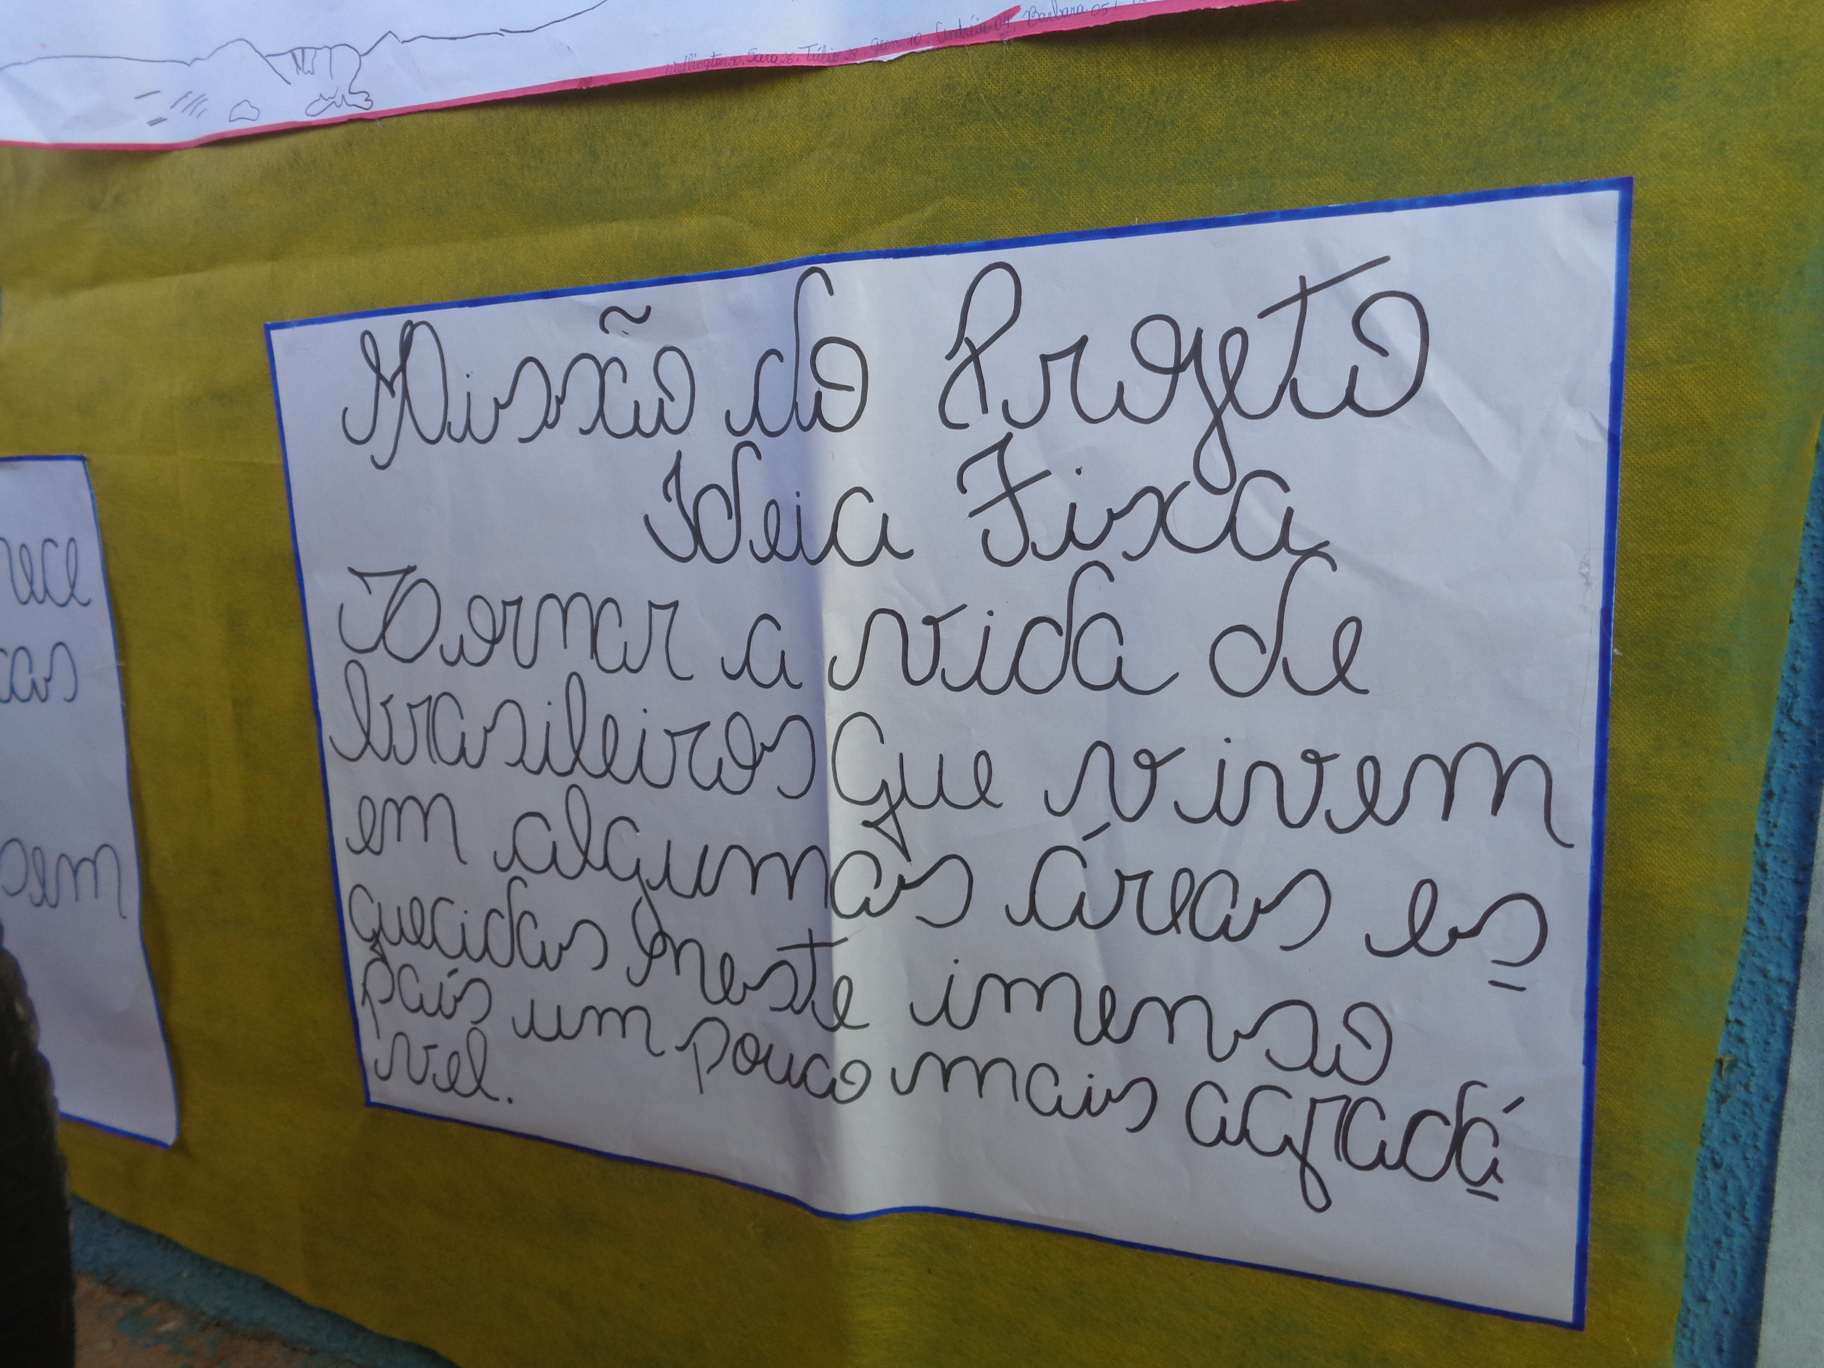 Bárbara 05
Missão do Projeto
Ideia Fixa
Tornar a vida de
brasileiros que vivem
em algumas áreas es
quecidas neste imenso
país um pouco mais agradá
vel.